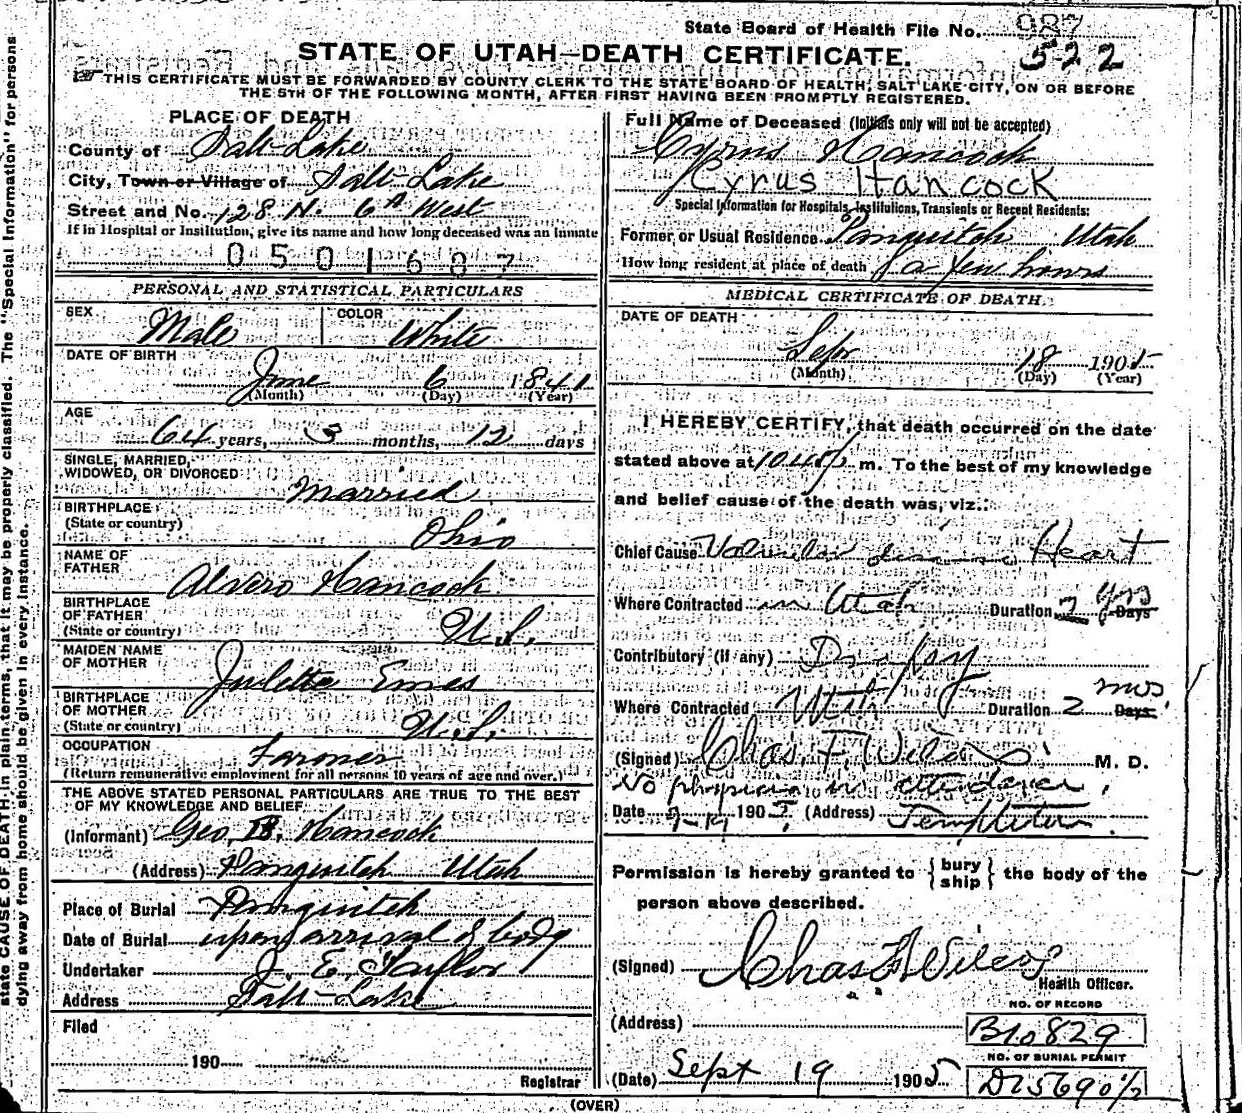 State Board of Health File No. 987
522
STATE OF UTAH—DEATH CERTIFICATE.
THIS CERTIFICATE MUST BE FORWARDED BY COUNTY CLERK TO THE STATE BOARD OF HEALTH, SALT LAKE CITY, ON OR BEFORE
THE 5TH OF THE FOLLOWING MONTH, AFTER FIRST HAVING BEEN PROMPTLY REGISTERED.
PLACE OF DEATH
County of Salt Lake
City, Town or Village of Salt Lake
Street and No. 128 N. 6th West
If in Hospital or Institution, give its name and how long deceased was an inmate
0501687
PERSONAL AND STATISTICAL PARTICULARS
SEX Male COLOR White
DATE OF BIRTH
June 6 1841
(Month) (Day) (Year)
AGE
64 years, 3 months, 12 days
SINGLE, MARRIED,
WIDOWED, OR DIVORCED Married
BIRTHPLACE
(State or country) Ohio
NAME OF
FATHER Alvero Hancock
BIRTHPLACE
OF FATHER
(State or country) U.S.
MAIDEN NAME
OF MOTHER Juletta Emes
BIRTHPLACE
OF MOTHER
(State or country) U.S.
OCCUPATION Farmer
(Return remunerative employment for all persons 10 years of age and over.)
THE ABOVE STATED PERSONAL PARTICULARS ARE TRUE TO THE BEST
OF MY KNOWLEDGE AND BELIEF
(Informant) Geo. B. Hancock
(Address) Panguitch Utah
Place of Burial Panguitch
Date of Burial upon arrival of body
Undertaker J. E. Taylor
Address Salt Lake
Filed
190
Registrar
Full Name of Deceased (Initials only will not be accepted)
Cyrus Hancock
Cyrus Hancock
Special Information for Hospitals, Institutions, Transients or Recent Residents:
Former or Usual Residence Panguitch Utah
How long resident at place of death a few hours
MEDICAL CERTIFICATE OF DEATH.
DATE OF DEATH
Sept 18 1905
(Month) (Day) (Year)
I HEREBY CERTIFY, that death occurred on the date
stated above at 10.45 p m. To the best of my knowledge
and belief cause of the death was, viz.:
Chief Cause Valvular disease Heart
Where Contracted in Utah Duration yrs Days
Contributory (if any) Dropsy
Where Contracted Utah Duration 2 mos Days
(Signed) Chas. F. Wilcox M. D.
No physician in attendance.
Date 9-19 1905 (Address) Templeton.
Permission is hereby granted to { bury ship } the body of the
person above described.
(Signed) Chas F Wilcox
Health Officer.
NO. OF RECORD
B10829
(Address)
NO. OF BURIAL PERMIT
(Date) Sept 19 1905
(OVER)
state CAUSE OF DEATH in plain terms, that it may be properly classified. The "Special Information" for persons
dying away from home should be given in every instance.